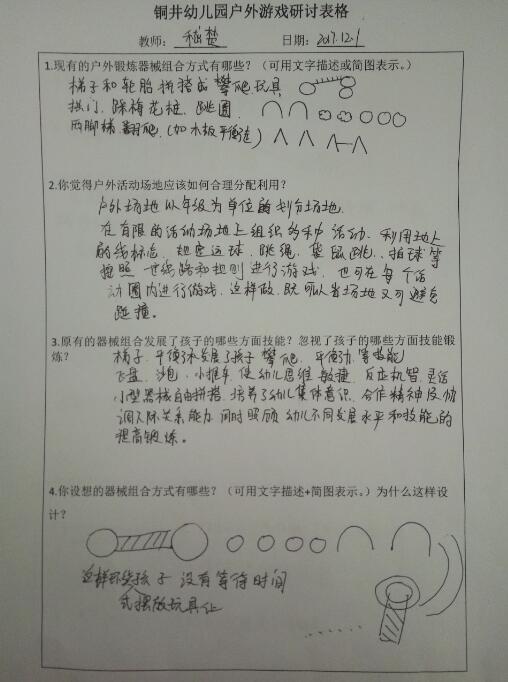 铜井幼儿园户外游戏研讨表格
教师： 楚 日期：2017.12.1
1.现有的户外锻炼器械组合方式有哪些？（可用文字描述或简图表示。）
梯子和轮胎拼搭成攀爬玩具
拱门、踩梅花桩、跳圈
两脚梯翻爬（如木板平衡走）
2.你觉得户外活动场地应该如何合理分配利用？
户外场地以年级为单位的划分场地.
在有限的活动场地上组织多种活动、利用地上
的线标志，如定运球、跳绳、袋鼠跳、拍球等
按照一定线路和规则进行游戏，也可在每个活
动圈内进行游戏，这样做，既可以省场地又可避免
碰撞。
3.原有的器械组合发展了孩子的哪些方面技能？忽视了孩子的哪些方面技能锻
炼？
梯子、平衡木发展了孩子攀爬、平衡力等技能
飞盘、沙包、小推车使幼儿思维敏捷、反应机智、灵活
小型器械自由拼搭，培养了幼儿集体意识、合作精神及协
调人际关系能力，同时照顾幼儿不同发展水平和技能的
提高锻炼。
4.你设想的器械组合方式有哪些？（可用文字描述+简图表示。）为什么这样设
计？
这样 孩子没有等待时间
式摆放玩具让